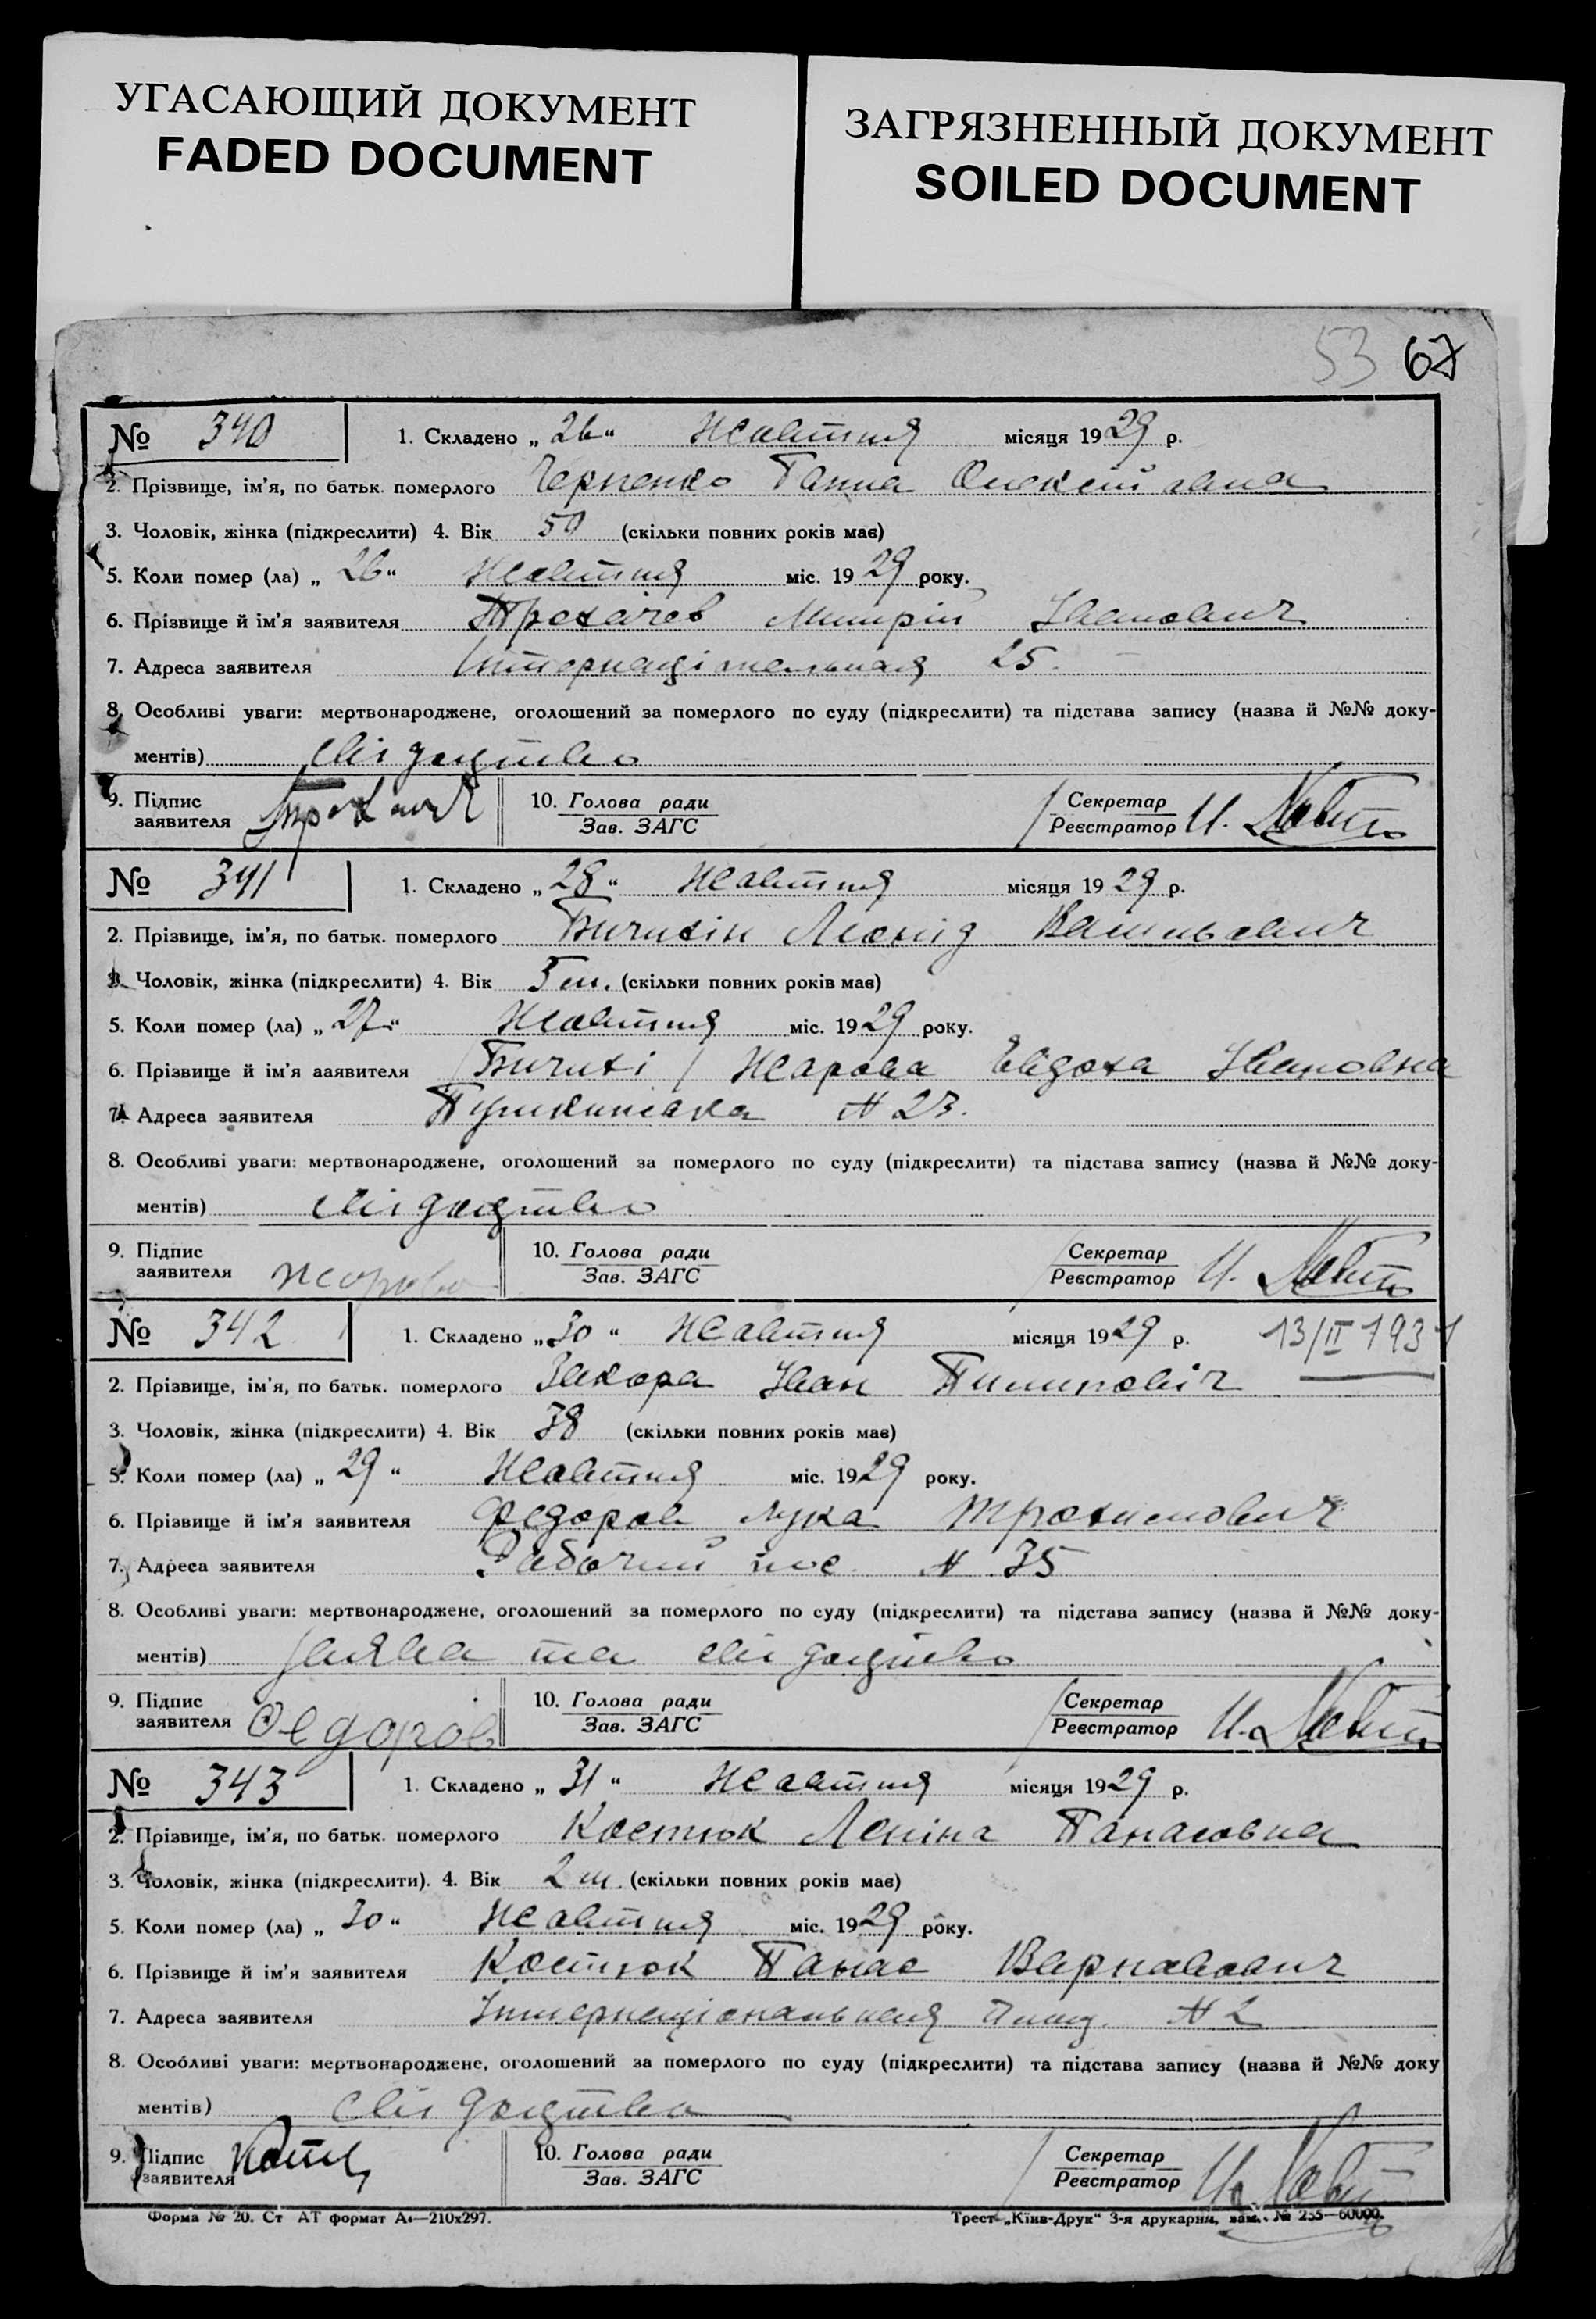 УГАСАЮЩИЙ ДОКУМЕНТ
FADED DOCUMENT
ЗАГРЯЗНЕННЫЙ ДОКУМЕНТ
SOILED DOCUMENT
53 67
№ 340 1. Складено „ 26 “ Жовтня місяця 1929 р.
2. Прізвище, ім'я, по батьк. померлого Черненко Ганна Олексіївна
3. Чоловік, жінка (підкреслити) 4. Вік 50 (скільки повних років має)
5. Коли помер (ла) „ 26 “ Жовтня міс. 1929 року.
6. Прізвище й ім'я заявителя Трохачов Митрій Іванович
7. Адреса заявителя Інтернаціональная 25.
8. Особливі уваги: мертвонароджене, оголошений за померлого по суду (підкреслити) та підстава запису (назва й №№ доку-
ментів) свідоцтво
9. Підпис заявителя 10. Голова ради Зав. ЗАГС Секретар Реєстратор
№ 341 1. Складено „ 28 “ Жовтня місяця 1929 р.
2. Прізвище, ім'я, по батьк. померлого Бичихін Леонід Васильович
3. Чоловік, жінка (підкреслити) 4. Вік 5 м. (скільки повних років має)
5. Коли помер (ла) „ 27 “ Жовтня міс. 1929 року.
6. Прізвище й ім'я заявителя Бичихі / Жарова Евдоха Івановна
7. Адреса заявителя Пушкинська № 23.
8. Особливі уваги: мертвонароджене, оголошений за померлого по суду (підкреслити) та підстава запису (назва й №№ доку-
ментів) свідоцтво
9. Підпис заявителя Жарова 10. Голова ради Зав. ЗАГС Секретар Реєстратор
№ 342 1. Складено „ 30 “ Жовтня місяця 1929 р. 13/II 1931
2. Прізвище, ім'я, по батьк. померлого Іван Пилипович
3. Чоловік, жінка (підкреслити) 4. Вік 38 (скільки повних років має)
5. Коли помер (ла) „ 29 “ Жовтня міс. 1929 року.
6. Прізвище й ім'я заявителя Федоров Лука Трохимович
7. Адреса заявителя Рабочий пос. № 35
8. Особливі уваги: мертвонароджене, оголошений за померлого по суду (підкреслити) та підстава запису (назва й №№ доку-
ментів) заява та свідоцтво
9. Підпис заявителя Федоров 10. Голова ради Зав. ЗАГС Секретар Реєстратор
№ 343 1. Складено „ 31 “ Жовтня місяця 1929 р.
2. Прізвище, ім'я, по батьк. померлого Костюк Леніна Панасовна
3. Чоловік, жінка (підкреслити). 4. Вік 2 м. (скільки повних років має)
5. Коли помер (ла) „ 30 “ Жовтня міс. 1929 року.
6. Прізвище й ім'я заявителя Костюк Панас Варнавович
7. Адреса заявителя Інтернаціональная № 2
8. Особливі уваги: мертвонароджене, оголошений за померлого по суду (підкреслити) та підстава запису (назва й №№ доку
ментів) свідоцтво
9. Підпис заявителя 10. Голова ради Зав. ЗАГС Секретар Реєстратор
Форма № 20. Ст АТ формат А4—210х297. Трест „Київ-Друк“ 3-я друкарня, зам. № 255—60000.